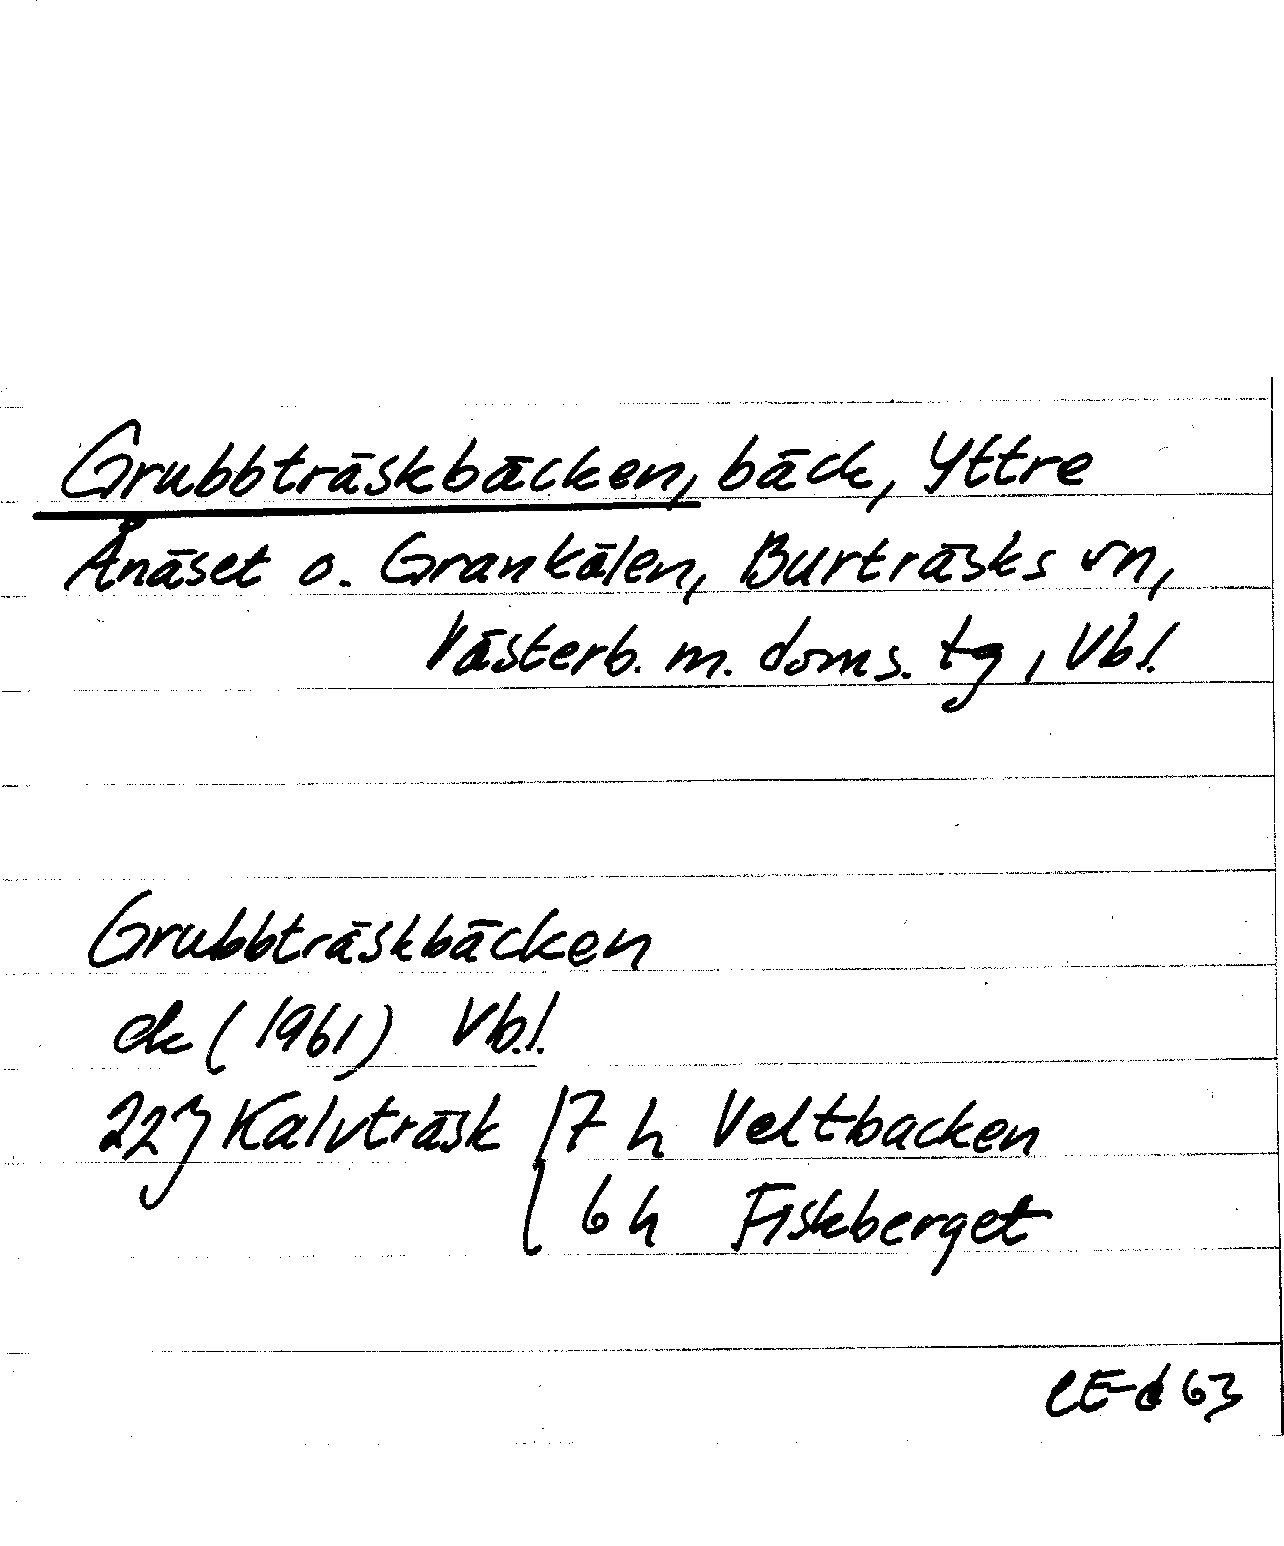 Grubbträskbäcken, bäck, Yttre
Ånäset o. Grankålen, Burträsks sn,
Västerb. m. doms. tg, Vbl.
Grubbträskbäcken
ek (1961) Vb.l.
22J Kalvträsk 7 h Veltbacken
6 h Fiskberget
CE-d 63